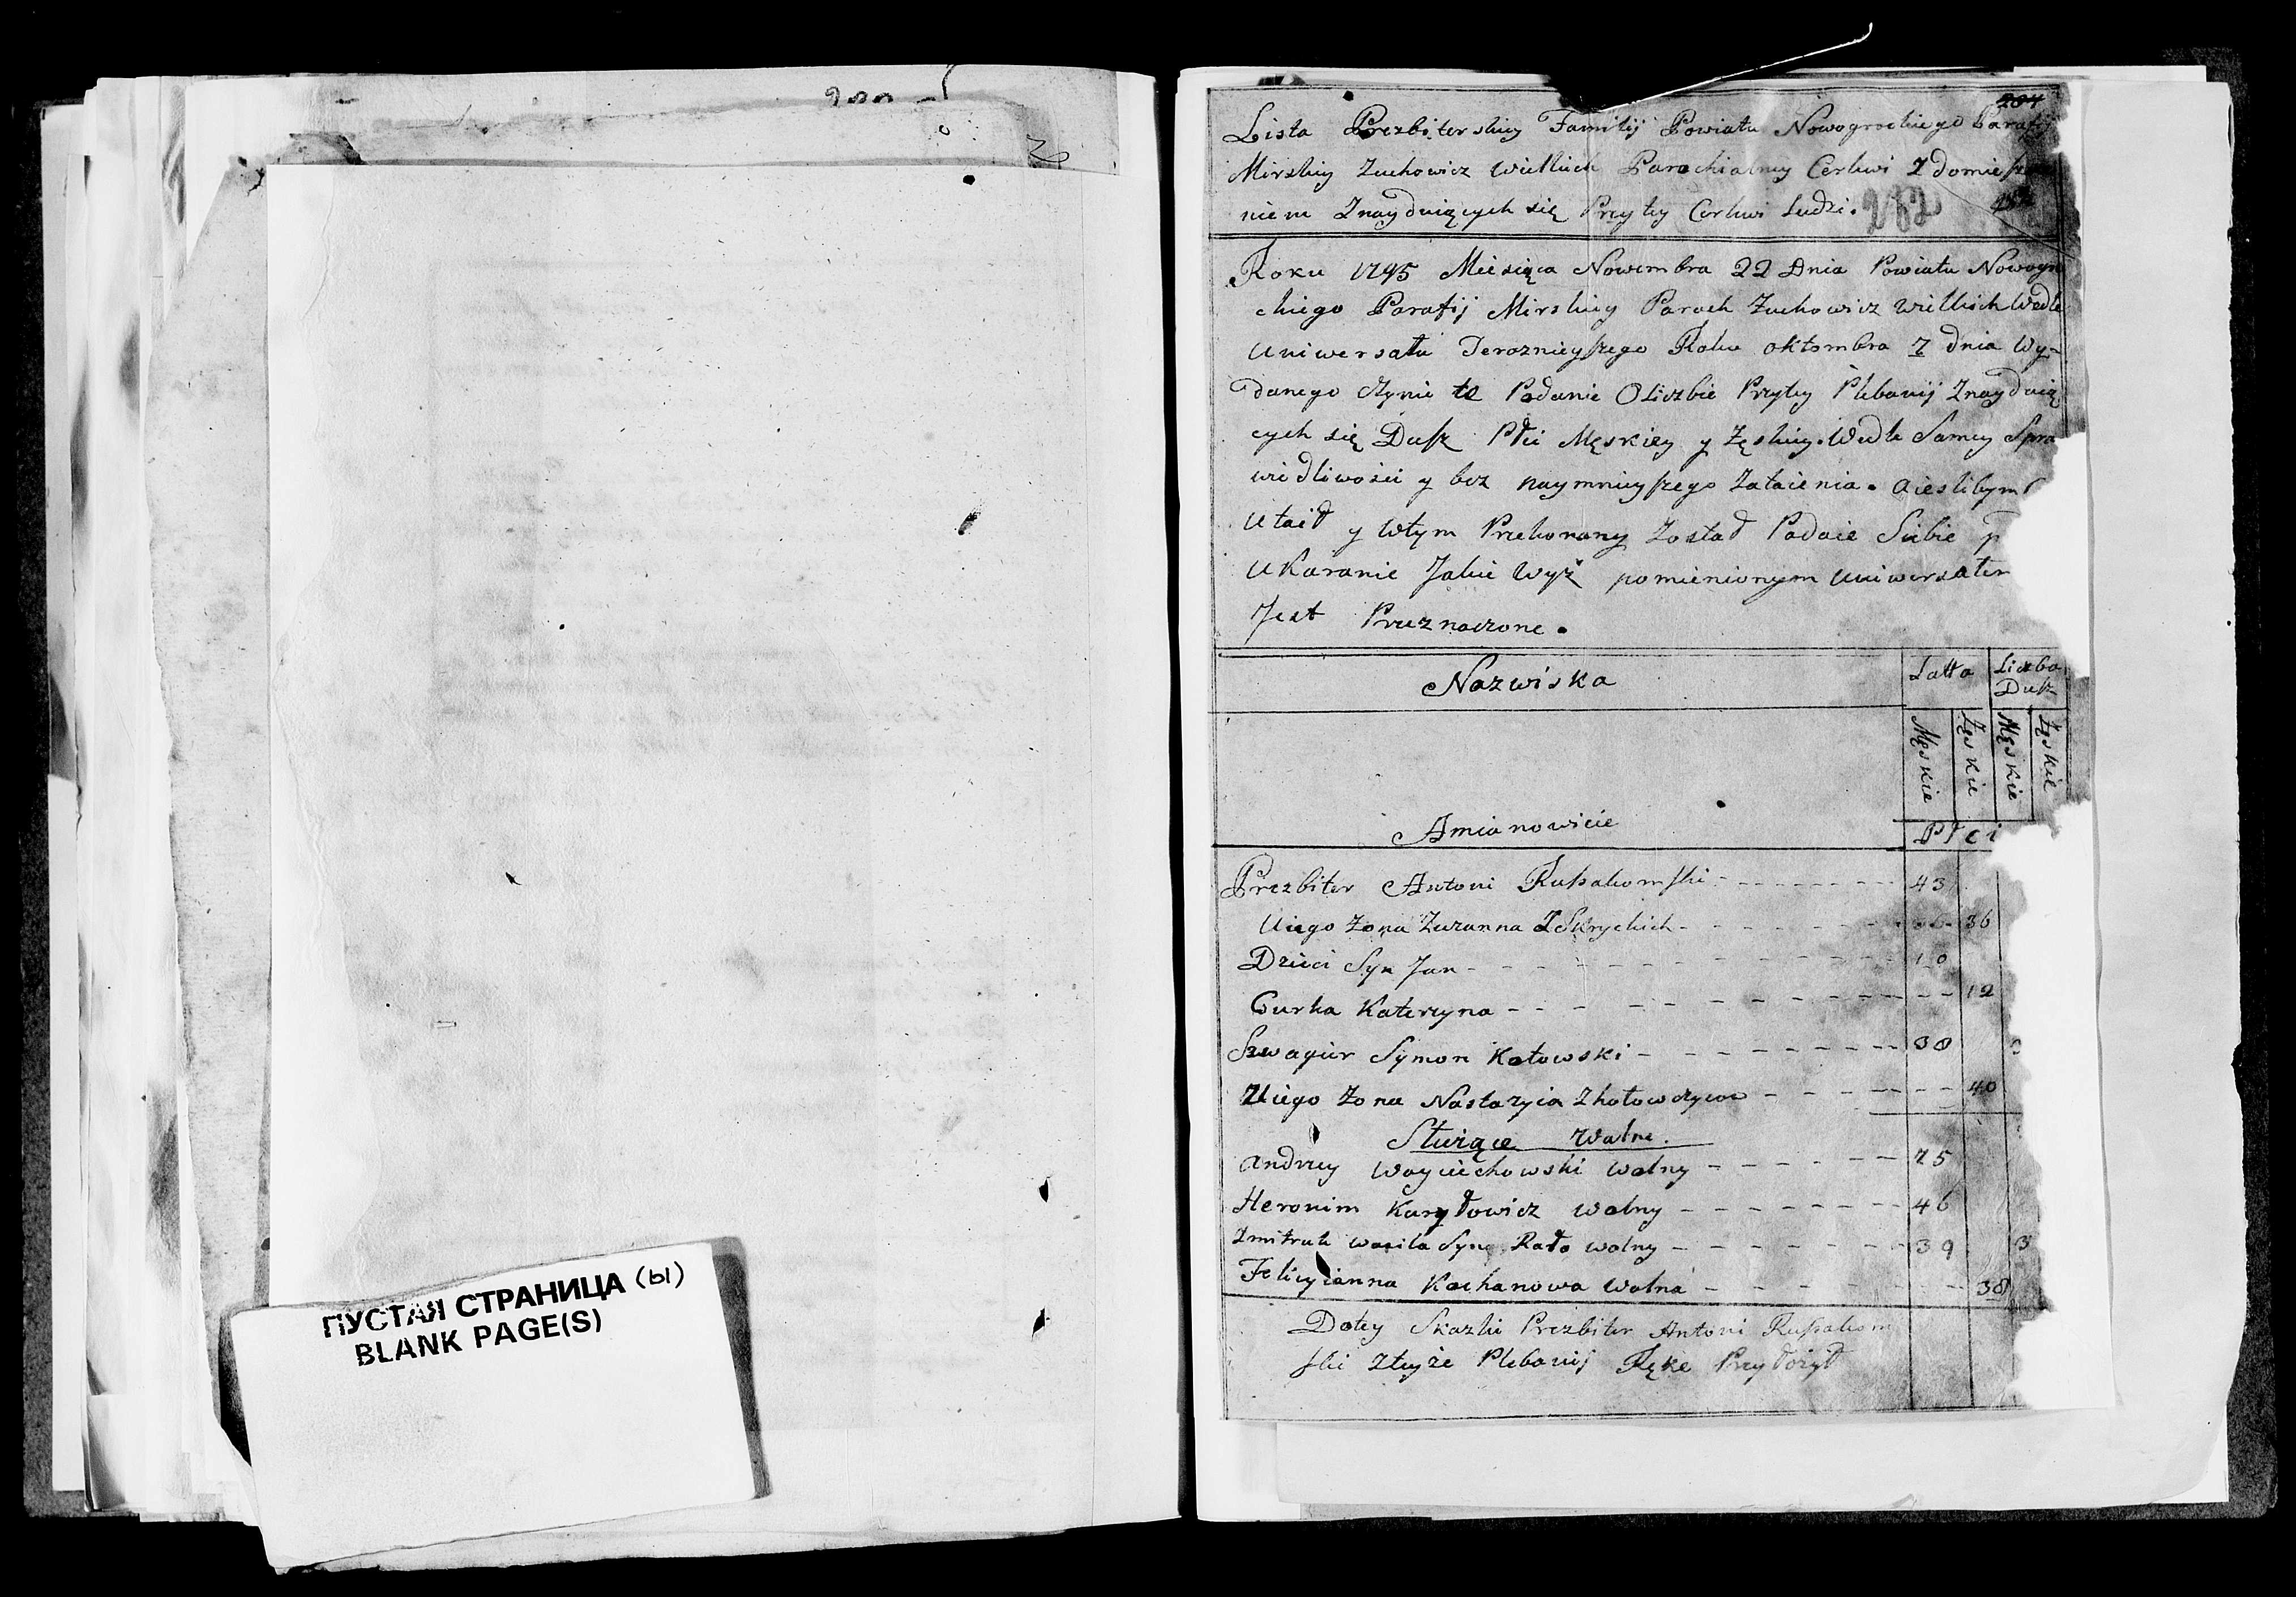 ПУСТАЯ СТРАНИЦА (ы)
BLANK PAGE(S)
204
Lista Prezbiterskiey Familij Powiatu Nowogrockiego Parafij
Mirskiey Zuchowicz Wielkich Parochialney Cerkwi Z domiesz
niem Znayduięcych się Przytey Cerkwi Ludzi.
282
Roku 1795 Miesięca Nowembra 22 Dnia Powiatu Nowogro
ckiego Parafij Mirskiey Paroch Zuchowicz Wielkich Wedle
Uniwersału Teroznieyszego Roku oktombra 7 dnia Wy-
danego Czynie te Podanie O Liczbie Przytey Plebanij Znayduię
cych się Dusz Płci Męskiey y Zęskiey. Wedle Samey Spra
wiedliwości y bez naymnieyszego Zataienia. aieslibym
Utaił y Wtym Prekonany Został Podaie Siebie p
Ukaranie Jakie Wyż pomienionym Uniwersałem
Jest Przeznaczone.
Nazwiska
Latta
Liczba
Dusz
Męskie
Zęskie
Męskie
Zęskie
Amianowicie
Płci
Prezbiter Antoni Ruszakowski 43
Uiego Zona Zuzanna Z Skryckich 36
Dzieci Syn Jan 10
Curka Katerzyna 12
Szwagier Symon Kotowski 30
Uiego Zona Nastazyia Zkotowczycow 40
Służące Wolne.
Andrzey Woyciechowski Wolny 25
Heronim Karyłowicz Wolny 46
Zmitruk Wasila Syn Rało wolny 39 3
Felicyianna Kochanowa Wolna 38
Dotey Skazki Prezbiter Antoni Ruszakow
ski Zteyże Plebanij Ręke Przyłożył